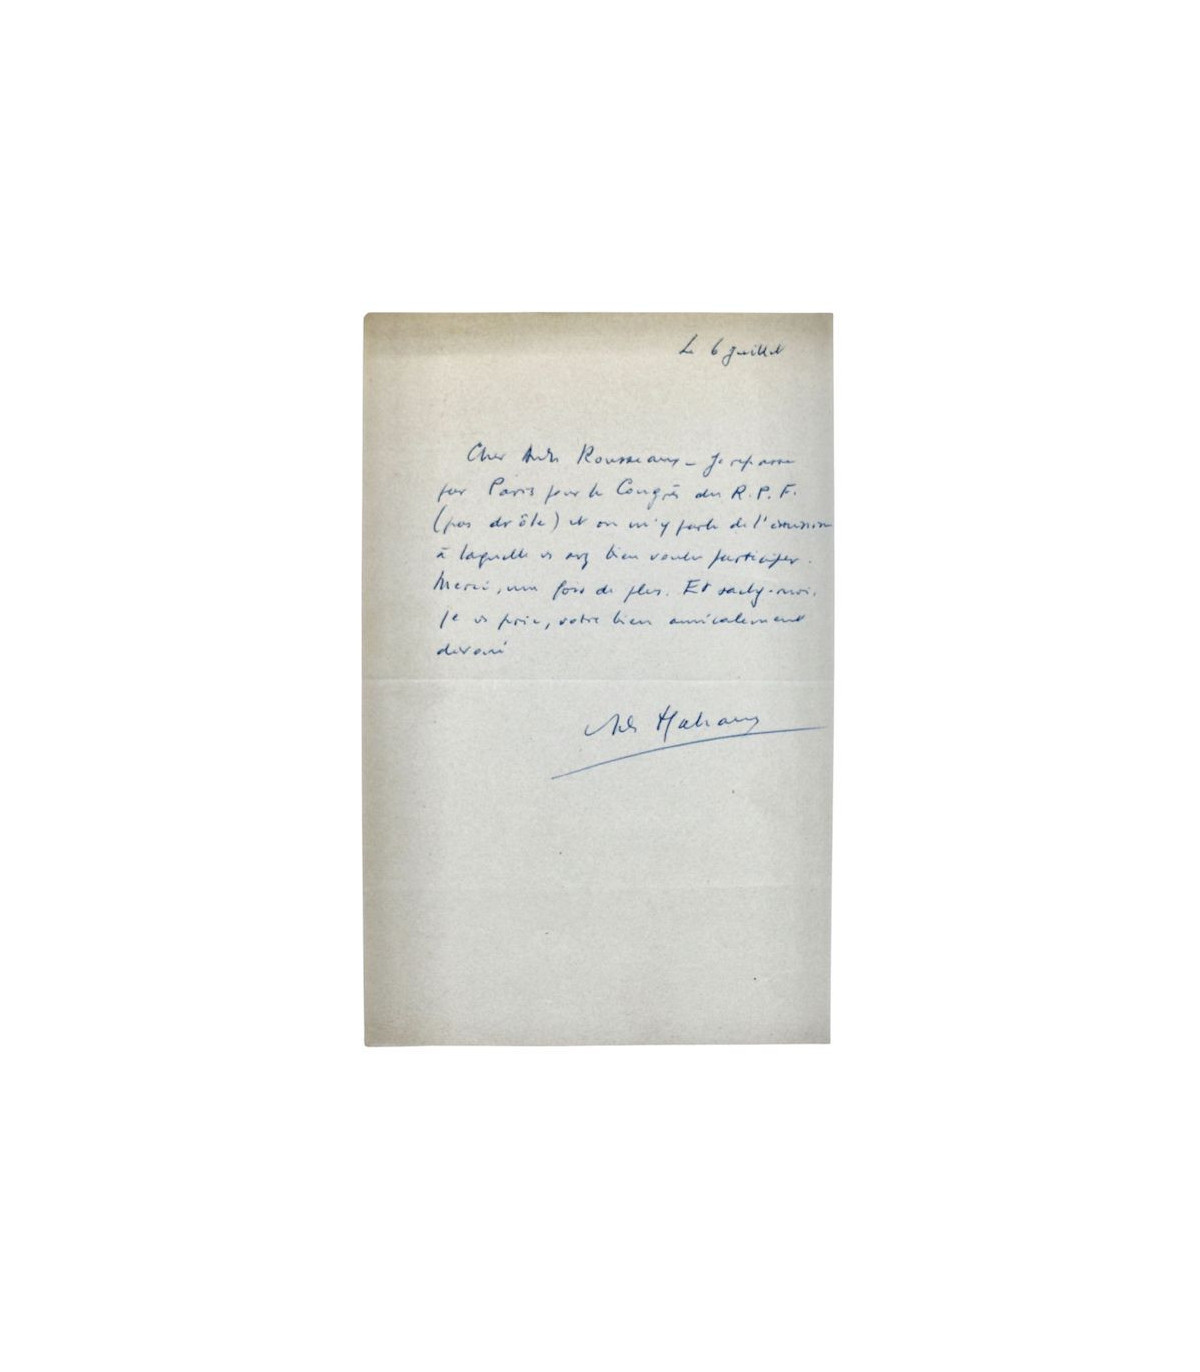 Le 6 juillet
Cher André Rousseaux – Je repasse
par Paris pour le Congrès du R.P.F.
(pas drôle) et on m'y parle de l'émission
à laquelle vs avez bien voulu participer.
Merci, une fois de plus. Et sachez-moi,
je vs prie, votre bien amicalement
dévoué
André Malraux